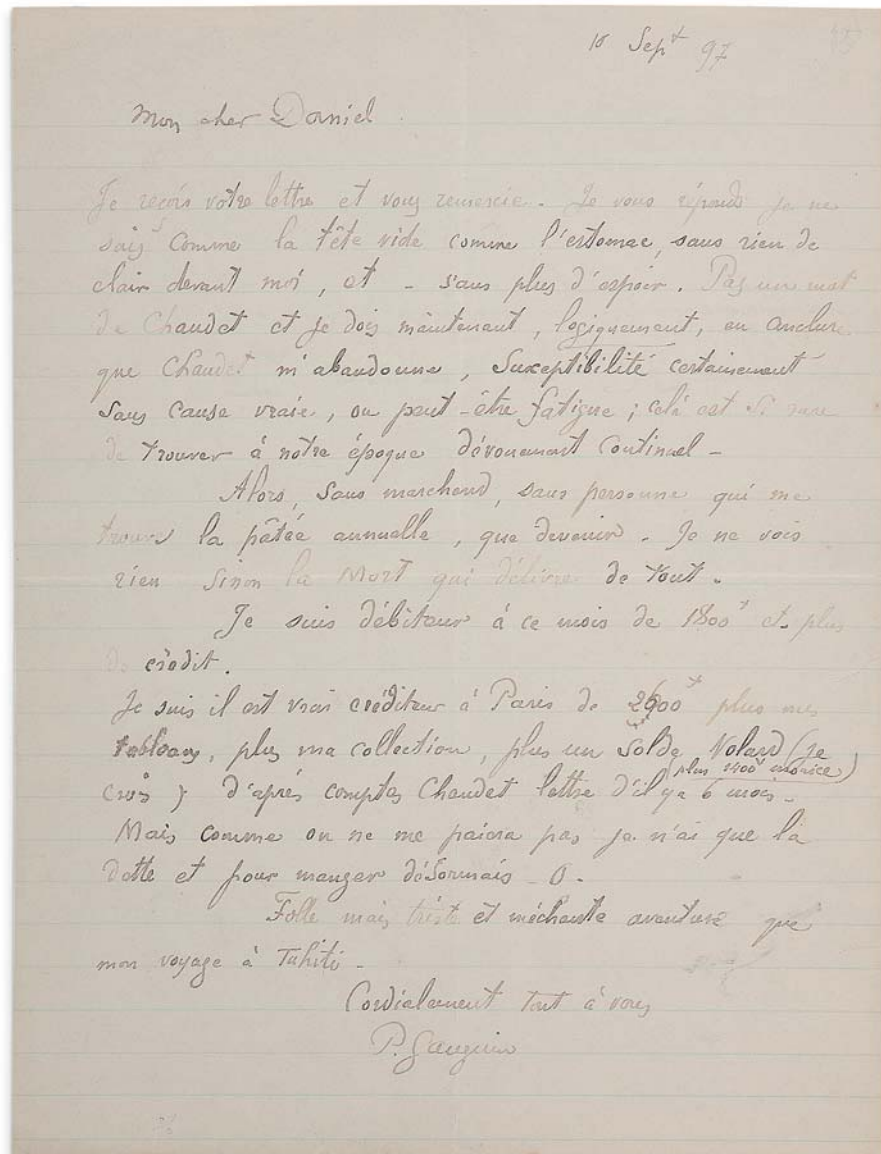 10 Sept 97
Mon cher Daniel.
Je reçois votre lettre et vous remercie. Je vous réponds je ne
sais comme la tête vide comme l'estomac, sans rien de
clair devant moi, et - sans plus d'espoir. Pas un mot
de Chaudet et je dois maintenant, logiquement, en conclure
que Chaudet m'abandonne, Susceptibilité certainement
sans cause vraie, ou peut-être fatigue ; celà est si rare
de trouver à notre époque dévouement Continuel -
Alors, sans marchand, sans personne qui me
trouve la pâtée annuelle, que devenir. Je ne vois
rien sinon la Mort qui délivre de tout.
Je suis débiteur à ce mois de 1800f et plus
de crédit.
Je suis il est vrai créditeur à Paris de plus mes
tableaux, plus ma collection, plus un solde Volard (je
crois) d'après comptes Chaudet lettre d'il y a 6 mois -
(plus 1400f morice)
Mais comme on ne me paiera pas je n'ai que la
dette et pour manger désormais - 0.
Folle mais triste et méchante aventure que
mon voyage à Tahiti -
Cordialement tout à vous
P. Gauguin